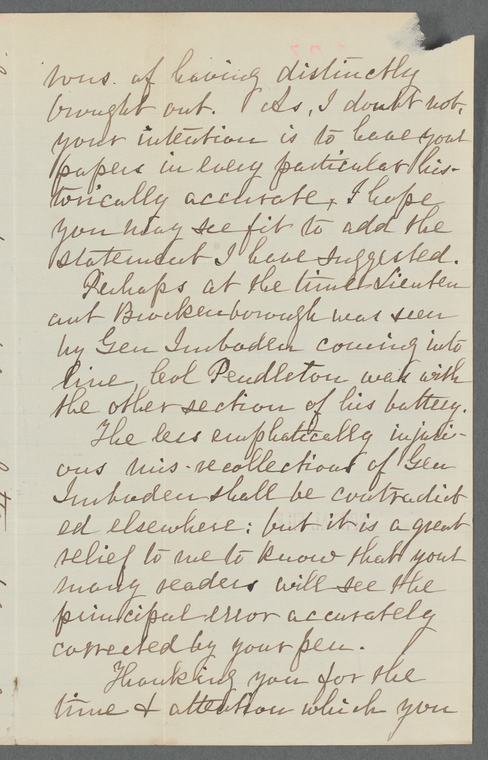 ious of having distinctly
brought out. As, I doubt not,
your intention is to have your
papers in every particular his-
torically accurate, I hope
you may see fit to add the
statement I have suggested.
Perhaps at the time Lieuten
ant Brockenborough was seen
by Gen Imboden coming into
line, Col Pendleton was with
the other section of his battery.
The less emphatically injuri-
ous mis-recollections of Gen
Imboden shall be contradict
ed elsewhere: but it is a great
relief to me to know that your
many readers will see the
principal error accurately
corrected by your pen.
Thanking you for the
time & attention which you